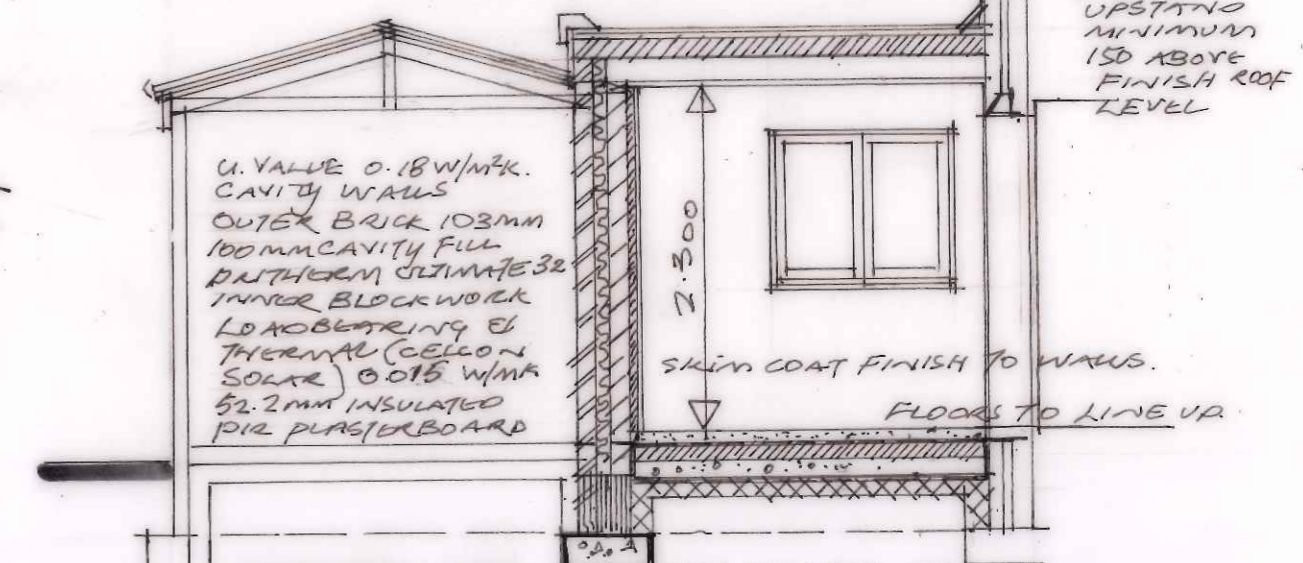 UPSTAND
MINIMUM
150 ABOVE
FINISH ROOF
LEVEL
U. VALUE 0.18 W/M²K.
CAVITY WALLS
OUTER BRICK 103MM
100MM CAVITY FILL
DRITHERM ULTIMATE 32
INNER BLOCKWORK
LOADBEARING &
THERMAL (CELCON
SOLAR) 0.015 W/MK
52.2MM INSULATED
PIR PLASTERBOARD
2.300
SKIM COAT FINISH TO WALLS.
FLOORS TO LINE UP.